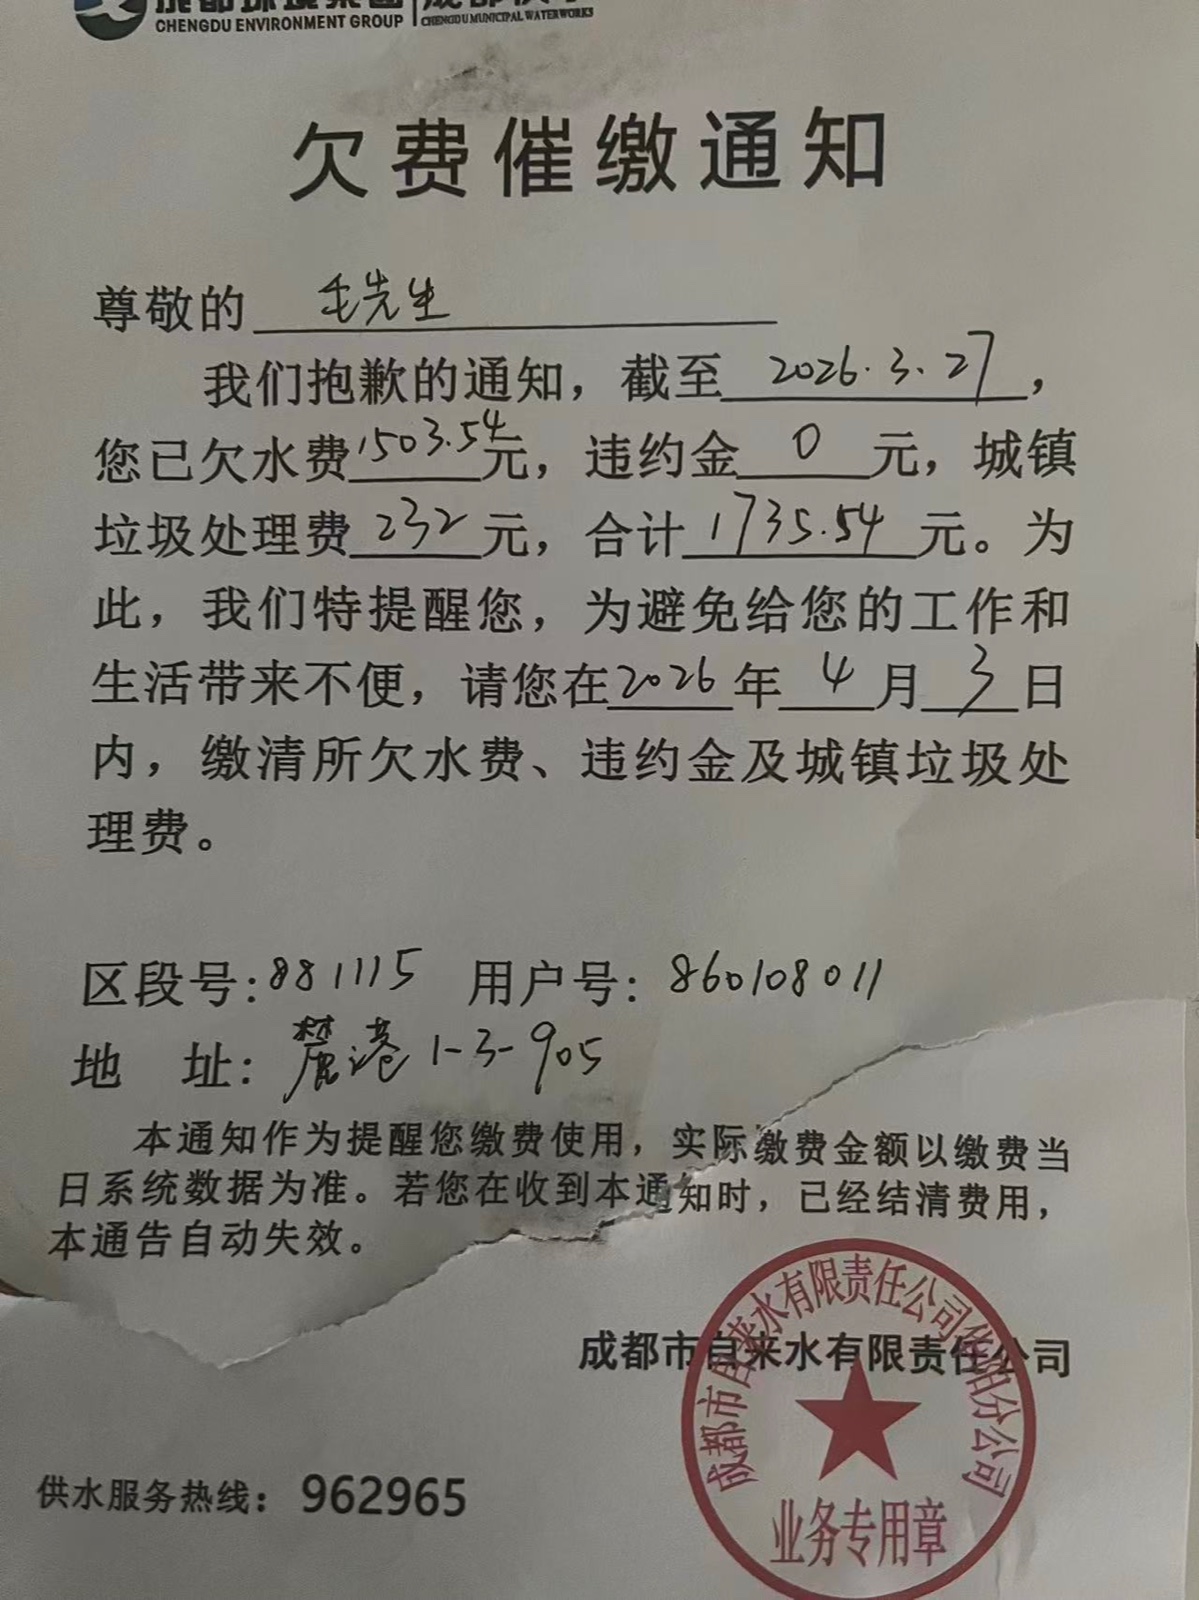 CHENGDU ENVIRONMENT GROUP
CHENGDU MUNICIPAL WATERWORKS
欠费催缴通知
尊敬的 毛先生
我们抱歉的通知，截至 2026.3.27，
您已欠水费1503.54元，违约金 0 元，城镇
垃圾处理费 232 元，合计 1735.54 元。为
此，我们特提醒您，为避免给您的工作和
生活带来不便，请您在2026年 4 月 3 日
内，缴清所欠水费、违约金及城镇垃圾处
理费。
区段号:881115 用户号: 860108011
地 址: 麓港 1-3-905
本通知作为提醒您缴费使用，实际缴费金额以缴费当
日系统数据为准。若您在收到本通知时，已经结清费用，
本通告自动失效。
成都市自来水有限责任公司
成都市自来水有限责任公司华阳分公司
业务专用章
供水服务热线： 962965